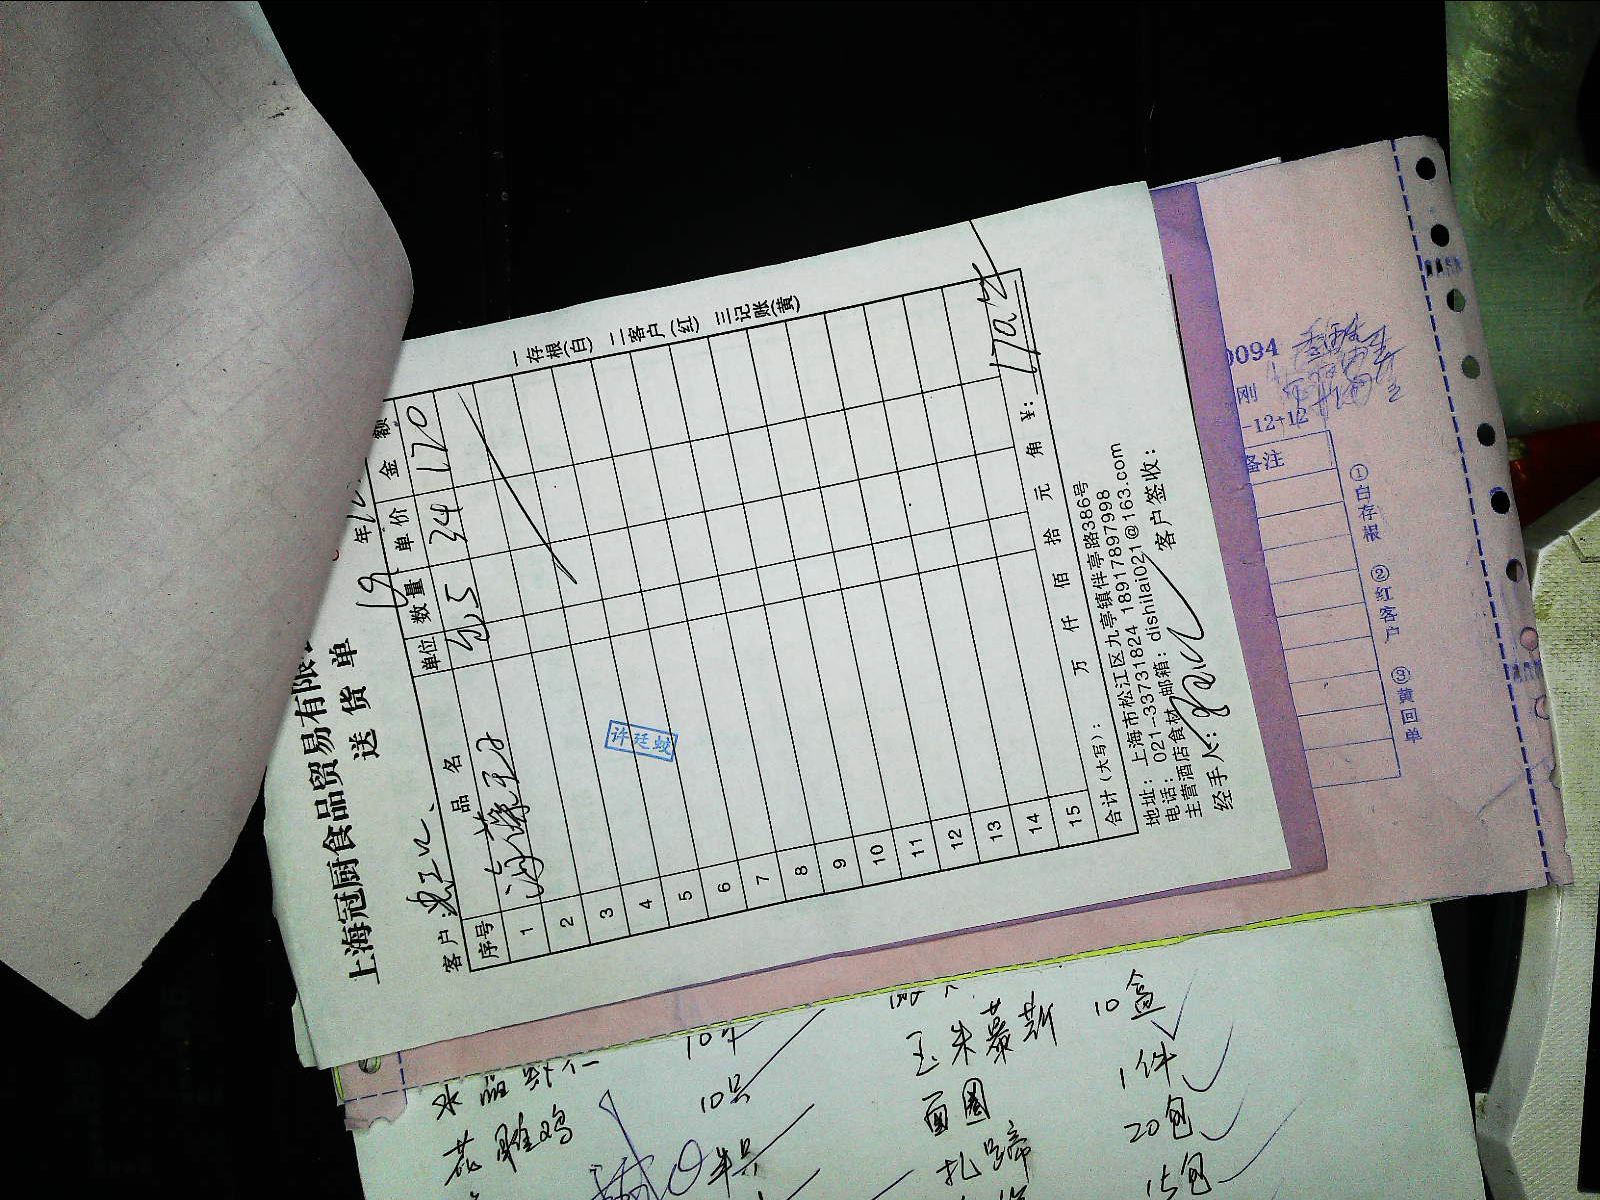 上海冠厨食品贸易有限
送货单
19年12
客户:
序号 品名 单位 数量 单价 金额
1 包 5 34 170
2
3
4
5
6
7
8
9
10
11
12
13
14
15
许廷蛟
合计(大写): 万 仟 佰 拾 元 角 ¥: 170元
地址: 上海市松江区九亭镇伴亭路386号
电话: 021-33731824 18917897998
主营酒店食材 邮箱: dishilai021@163.com
经手人: 客户签收:
一存根(白) 二客户(红) 三记账(黄)
0094
刚
-12-12
备注
①白存根 ②红客户 ③黄回单
水晶虾仁 10
花雕鸡 10只
半只
玉米慕斯 10盒
面圈 1件
扎蹄 20包
15包